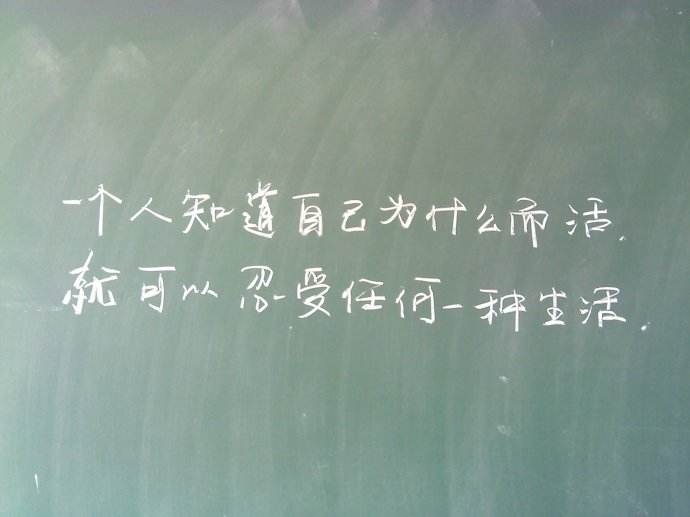 一个人知道自己为什么而活,
就可以忍受任何一种生活.